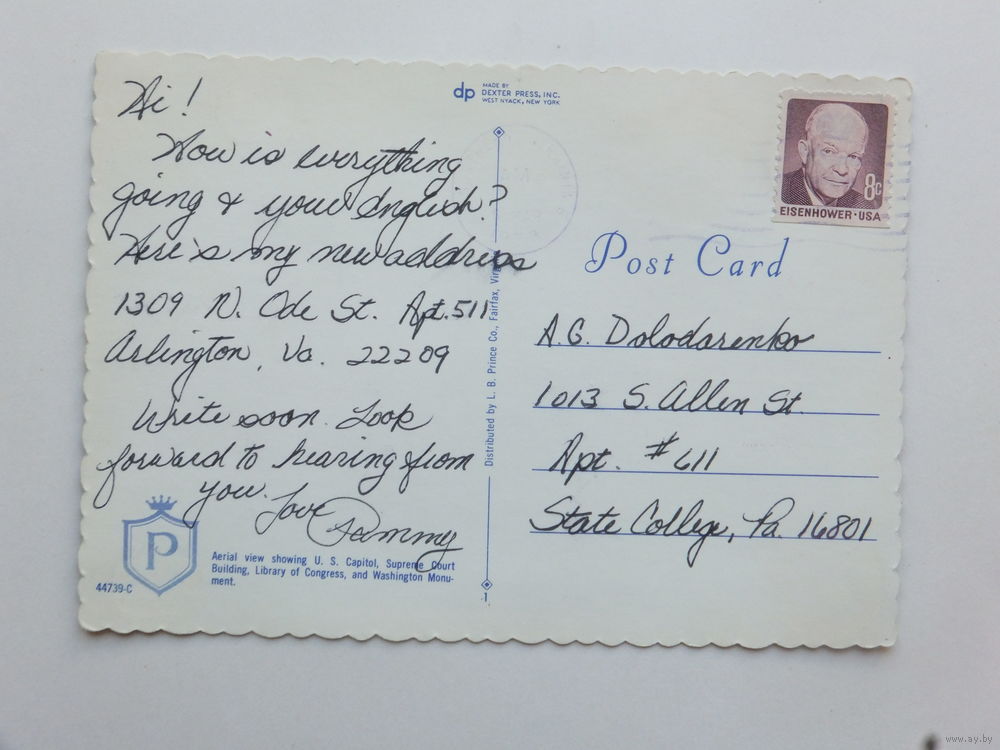 Hi!
How is everything
going & your English?
Here's my new address
1309 N. Ode St. Apt. 511
Arlington, Va. 22209
Write soon. Look
forward to hearing from
you. Love
Pammy
P
Aerial view showing U. S. Capitol, Supreme Court
Building, Library of Congress, and Washington Monu-
ment.
44739-C
dp
MADE BY
DEXTER PRESS, INC.
WEST NYACK, NEW YORK
Distributed by L. B. Prince Co., Fairfax,
1
8c
EISENHOWER·USA
Post Card
A.G. Dolodarenko
1013 S. Allen St.
Apt. #611
State College, Pa. 16801
www.ay.by